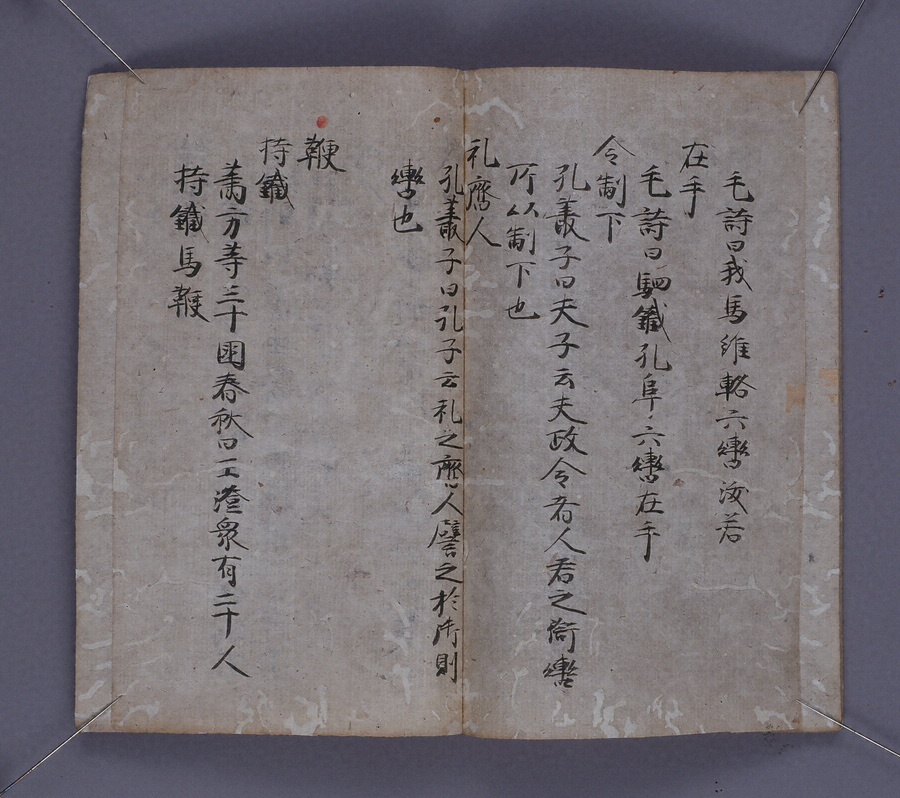 毛詩曰我馬維輅六轡汝若
在手
毛詩曰駟鐵孔阜六轡在手
令制下
孔叢子曰夫子云夫政令者人君之銜轡
所以制下也
礼齊人
孔叢子曰孔子云礼之齊人譬之於御則
轡也
鞭
持鐵
蕭方等三十国春秋曰王澄衆有二十人
持鐵馬鞭